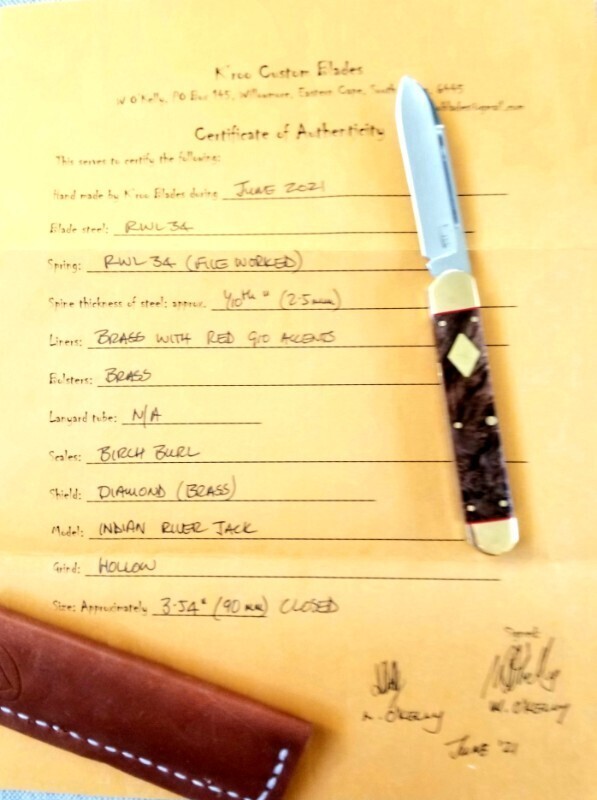 K'roo Custom Blades
W O'Kelly, PO Box 145, Willowmore, Eastern Cape, South 6445
Certificate of Authenticity
This serves to certify the following:
Hand made by K'roo Blades during JUNE 2021
Blade steel: RWL 34
Spring: RWL 34 (FILE WORKED)
Spine thickness of steel: approx. 1/10th " (2.5mm)
Liners: BRASS WITH RED G10 ACCENTS
Bolsters: BRASS
Lanyard tube: N/A
Scales: BIRCH BURL
Shield: DIAMOND (BRASS)
Model: INDIAN RIVER JACK
Grind: HOLLOW
Size: Approximately 3.54" (90 mm) CLOSED
Signed:
O'KELLY W. O'KELLY
JUNE '21